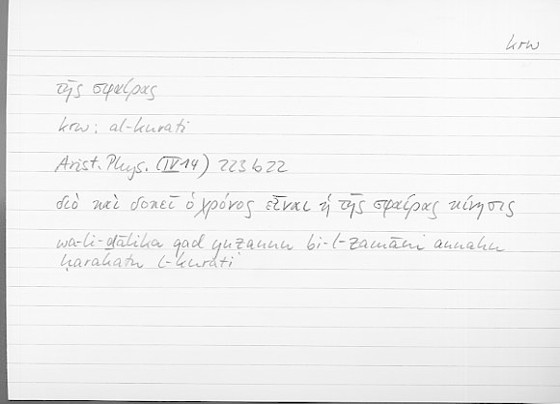 krw
τῆς σφαίρας
krw: al-kurati
Arist. Phys. (IV 14) 223b22
διὸ καὶ δοκεῖ ὁ χρόνος εἶναι ἡ τῆς σφαίρας κίνησις
wa-li-ḏālika qad yuẓannu bi-l-zamāni annahu
ḥarakatu l-kurati